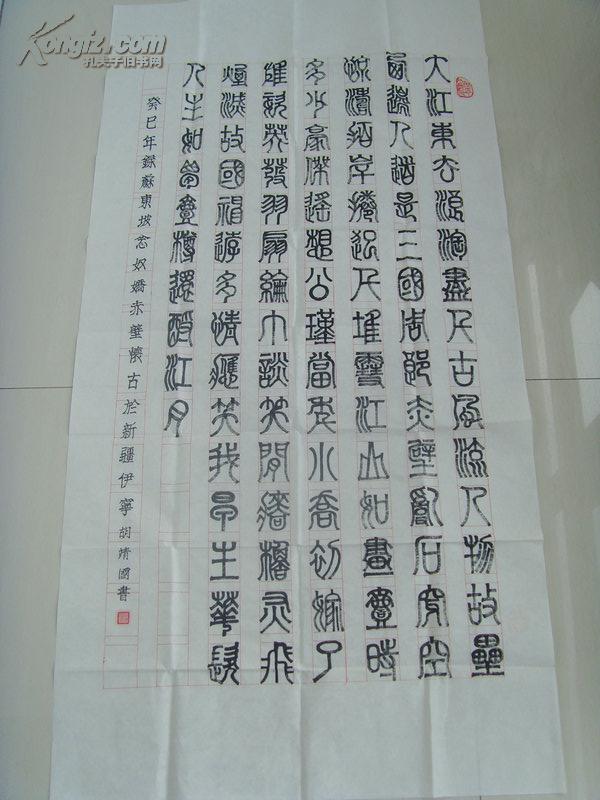 Kongfz.com
孔夫子旧书网
大江東去浪淘盡千古風流人物故壘
西邊人道是三國周郎赤壁亂石穿空
惊濤拍岸捲起千堆雪江山如畫壹時
多少豪傑遙想公瑾當年小喬初嫁了
雄姿英發羽扇綸巾談笑間檣櫓灰飛
煙滅故國神遊多情應笑我早生華髮
人生如夢壹樽還酹江月
癸巳年錄蘇東坡念奴嬌赤壁懷古於新疆伊寧胡靖國書